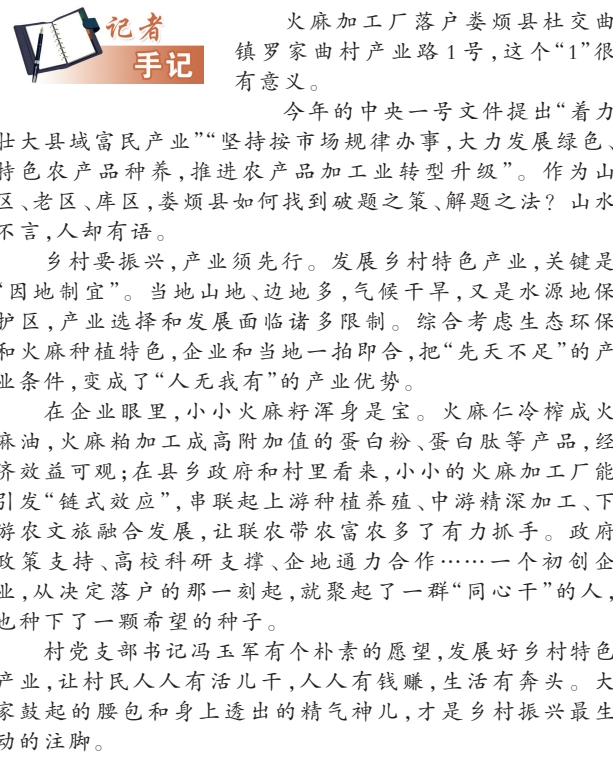 记者
手记
火麻加工厂落户娄烦县杜交曲
镇罗家曲村产业路1号,这个“1”很
有意义。
今年的中央一号文件提出“着力
壮大县域富民产业”“坚持按市场规律办事,大力发展绿色、
特色农产品种养,推进农产品加工业转型升级”。作为山
区、老区、库区,娄烦县如何找到破题之策、解题之法？山水
不言,人却有语。
乡村要振兴,产业须先行。发展乡村特色产业,关键是
“因地制宜”。当地山地、边地多,气候干旱,又是水源地保
护区,产业选择和发展面临诸多限制。综合考虑生态环保
和火麻种植特色,企业和当地一拍即合,把“先天不足”的产
业条件,变成了“人无我有”的产业优势。
在企业眼里,小小火麻籽浑身是宝。火麻仁冷榨成火
麻油,火麻粕加工成高附加值的蛋白粉、蛋白肽等产品,经
济效益可观;在县乡政府和村里看来,小小的火麻加工厂能
引发“链式效应”,串联起上游种植养殖、中游精深加工、下
游农文旅融合发展,让联农带农富农多了有力抓手。政府
政策支持、高校科研支撑、企地通力合作……一个初创企
业,从决定落户的那一刻起,就聚起了一群“同心干”的人,
也种下了一颗希望的种子。
村党支部书记冯玉军有个朴素的愿望,发展好乡村特色
产业,让村民人人有活儿干,人人有钱赚,生活有奔头。大
家鼓起的腰包和身上透出的精气神儿,才是乡村振兴最生
动的注脚。